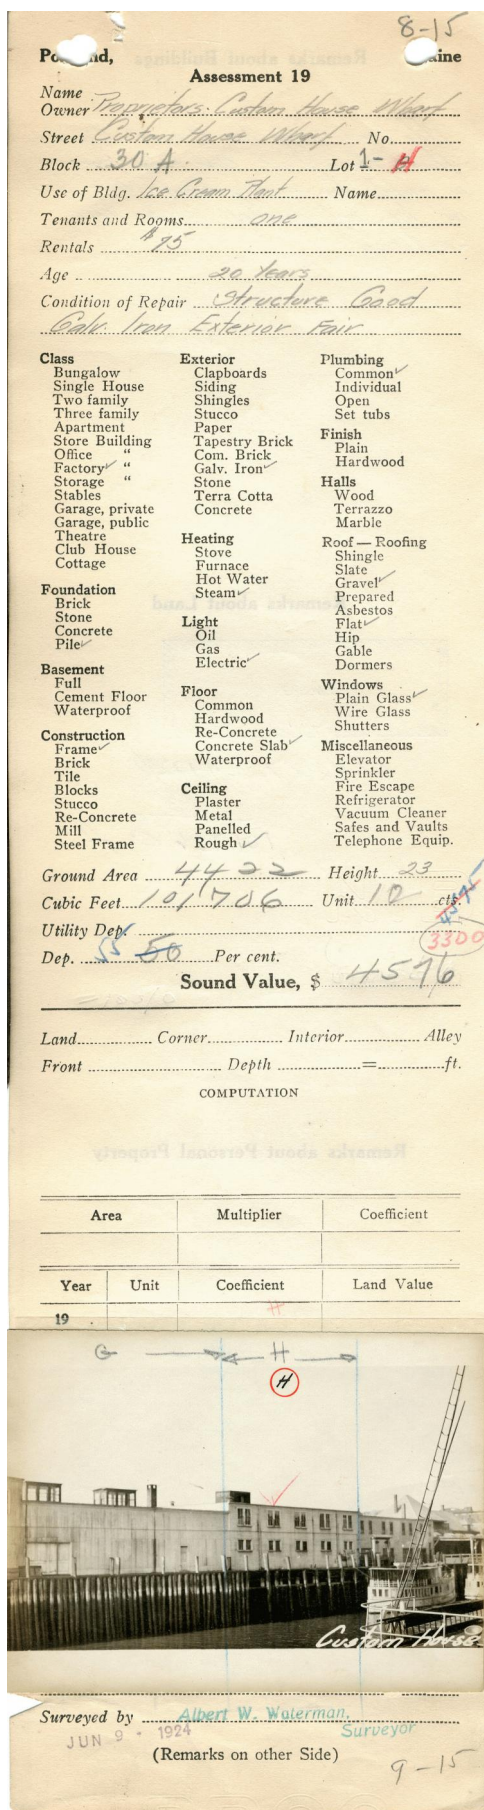 8-15
Po nd, aine
Assessment 19
Name
Owner Proprietors. Custom House Wharf
Street Custom House Wharf No.
Block 30 A. Lot 1- H
Use of Bldg. Ice Cream Plant Name
Tenants and Rooms one
Rentals $75
Age 20 Years
Condition of Repair Structure Good
Galv. Iron Exterior Fair
Class
Bungalow
Single House
Two family
Three family
Apartment
Store Building
Office "
Factory ✓ "
Storage "
Stables
Garage, private
Garage, public
Theatre
Club House
Cottage
Foundation
Brick
Stone
Concrete
Pile ✓
Basement
Full
Cement Floor
Waterproof
Construction
Frame ✓
Brick
Tile
Blocks
Stucco
Re-Concrete
Mill
Steel Frame
Exterior
Clapboards
Siding
Shingles
Stucco
Paper
Tapestry Brick
Com. Brick
Galv. Iron ✓
Stone
Terra Cotta
Concrete
Heating
Stove
Furnace
Hot Water
Steam ✓
Light
Oil
Gas
Electric ✓
Floor
Common
Hardwood
Re-Concrete
Concrete Slab ✓
Waterproof
Ceiling
Plaster
Metal
Panelled
Rough ✓
Plumbing
Common ✓
Individual
Open
Set tubs
Finish
Plain
Hardwood
Halls
Wood
Terrazzo
Marble
Roof — Roofing
Shingle
Slate
Gravel ✓
Prepared
Asbestos
Flat ✓
Hip
Gable
Dormers
Windows
Plain Glass ✓
Wire Glass
Shutters
Miscellaneous
Elevator
Sprinkler
Fire Escape
Refrigerator
Vacuum Cleaner
Safes and Vaults
Telephone Equip.
Ground Area 4422 Height 23
Cubic Feet 101706 Unit 10 cts.
Utility Dep.
3300
Dep. 55 50 Per cent.
Sound Value, $ 4576
Land Corner Interior Alley
Front Depth = ft.
COMPUTATION
Area Multiplier Coefficient
Year Unit Coefficient Land Value
19 H
G H
H
Custom House
Surveyed by Albert W. Waterman,
Surveyor
JUN 9 - 1924
(Remarks on other Side)
9-15